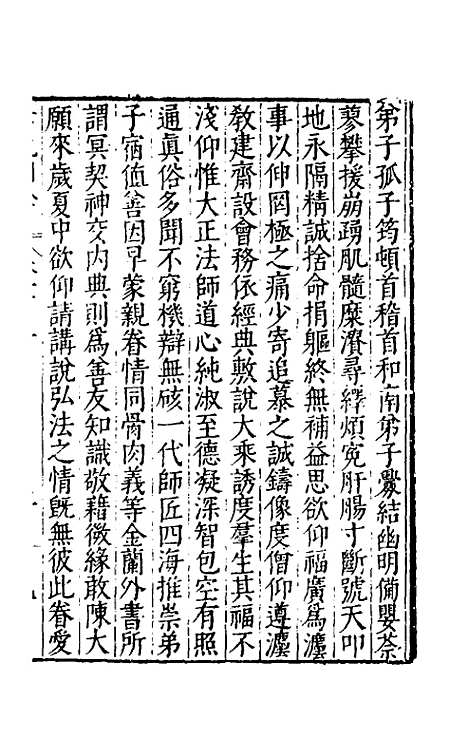 弟子孤子筠頓首稽首和南弟子舋結幽明備嬰荼
蓼攀援崩踴肌髓糜潰尋繹煩寃肝腸寸斷號天叩
地永隔精誠捨命捐軀終無補益思欲仰福廣爲灋
事以伸罔極之痛少寄追慕之誠鑄像度僧仰遵灋
教建齋設會務依經典敷說大乘誘度羣生其福不
淺仰惟大正法師道心純淑至德凝深智包空有照
通眞俗多聞不窮機辯無硋一代師匠四海推崇弟
子宿値善因早蒙親眷情同骨肉義等金蘭外書所
謂冥契神交内典則爲善友知識敬藉微緣敢陳大
願來歲夏中欲仰請講說弘法之情旣無彼此眷愛